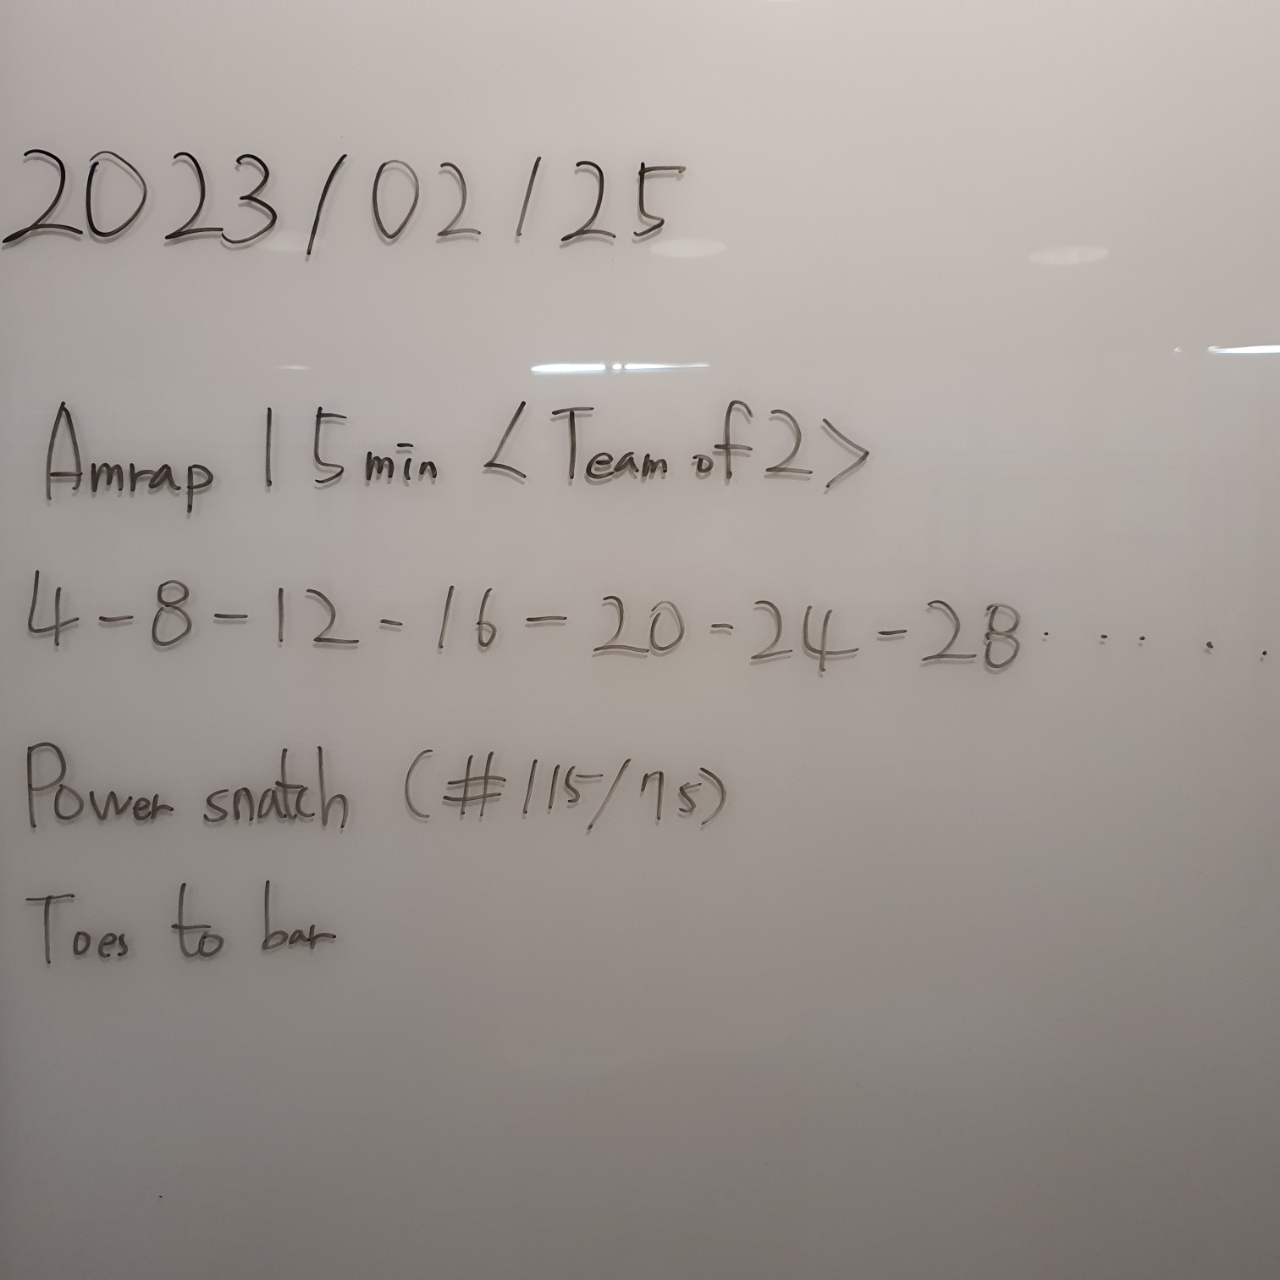 2023/02/25
Amrap 15min <Team of 2>
4-8-12-16-20-24-28......
Power snatch (#115/75)
Toes to bar